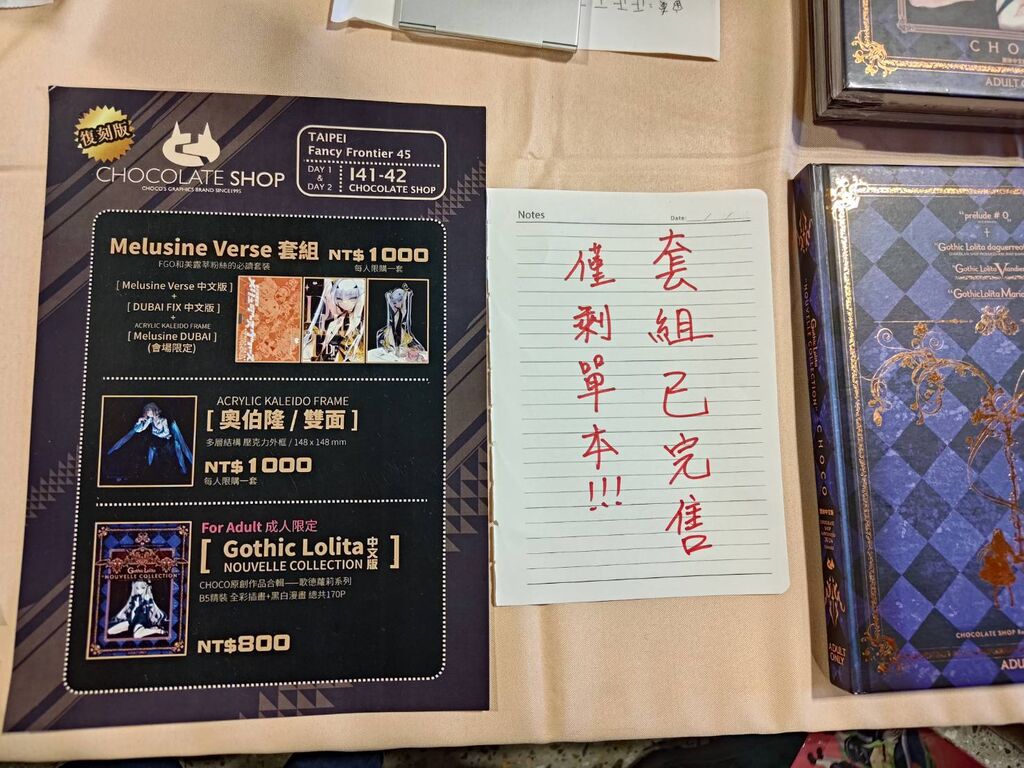 復刻版
CHOCOLATE SHOP
CHOCO'S GRAPHICS BRAND SINCE1995
TAIPEI
Fancy Frontier 45
DAY 1 & DAY 2
I41-42
CHOCOLATE SHOP
Melusine Verse 套組 NT$1000
FGO和美露莘粉絲的必讀套裝
每人限購一套
[ Melusine Verse 中文版 ]
+
[ DUBAI FIX 中文版 ]
+
ACRYLIC KALEIDO FRAME
[ Melusine DUBAI ]
(會場限定)
ACRYLIC KALEIDO FRAME
[ 奧伯隆 / 雙面 ]
多層結構 壓克力外框 / 148 x 148 mm
NT$1000
每人限購一套
For Adult 成人限定
[ Gothic Lolita
NOUVELLE COLLECTION 中文版 ]
CHOCO原創作品合輯——歌德蘿莉系列
B5精裝 全彩插畫+黑白漫畫 總共170P
NT$800
Gothic Lolita
"NOUVELLE COLLECTION"
Notes
Date:
套組已完售
僅剩單本!!!
CHO
ADULT
"prélude # 0
"Gothic Lolita daguerreot
"Gothic Lolita Viandie
"GothicLolita Maria
Gothic Lolita
"NOUVELLE COLLECTION" CHOCO
ADULT ONLY
CHOCOLATE SHOP
ADU